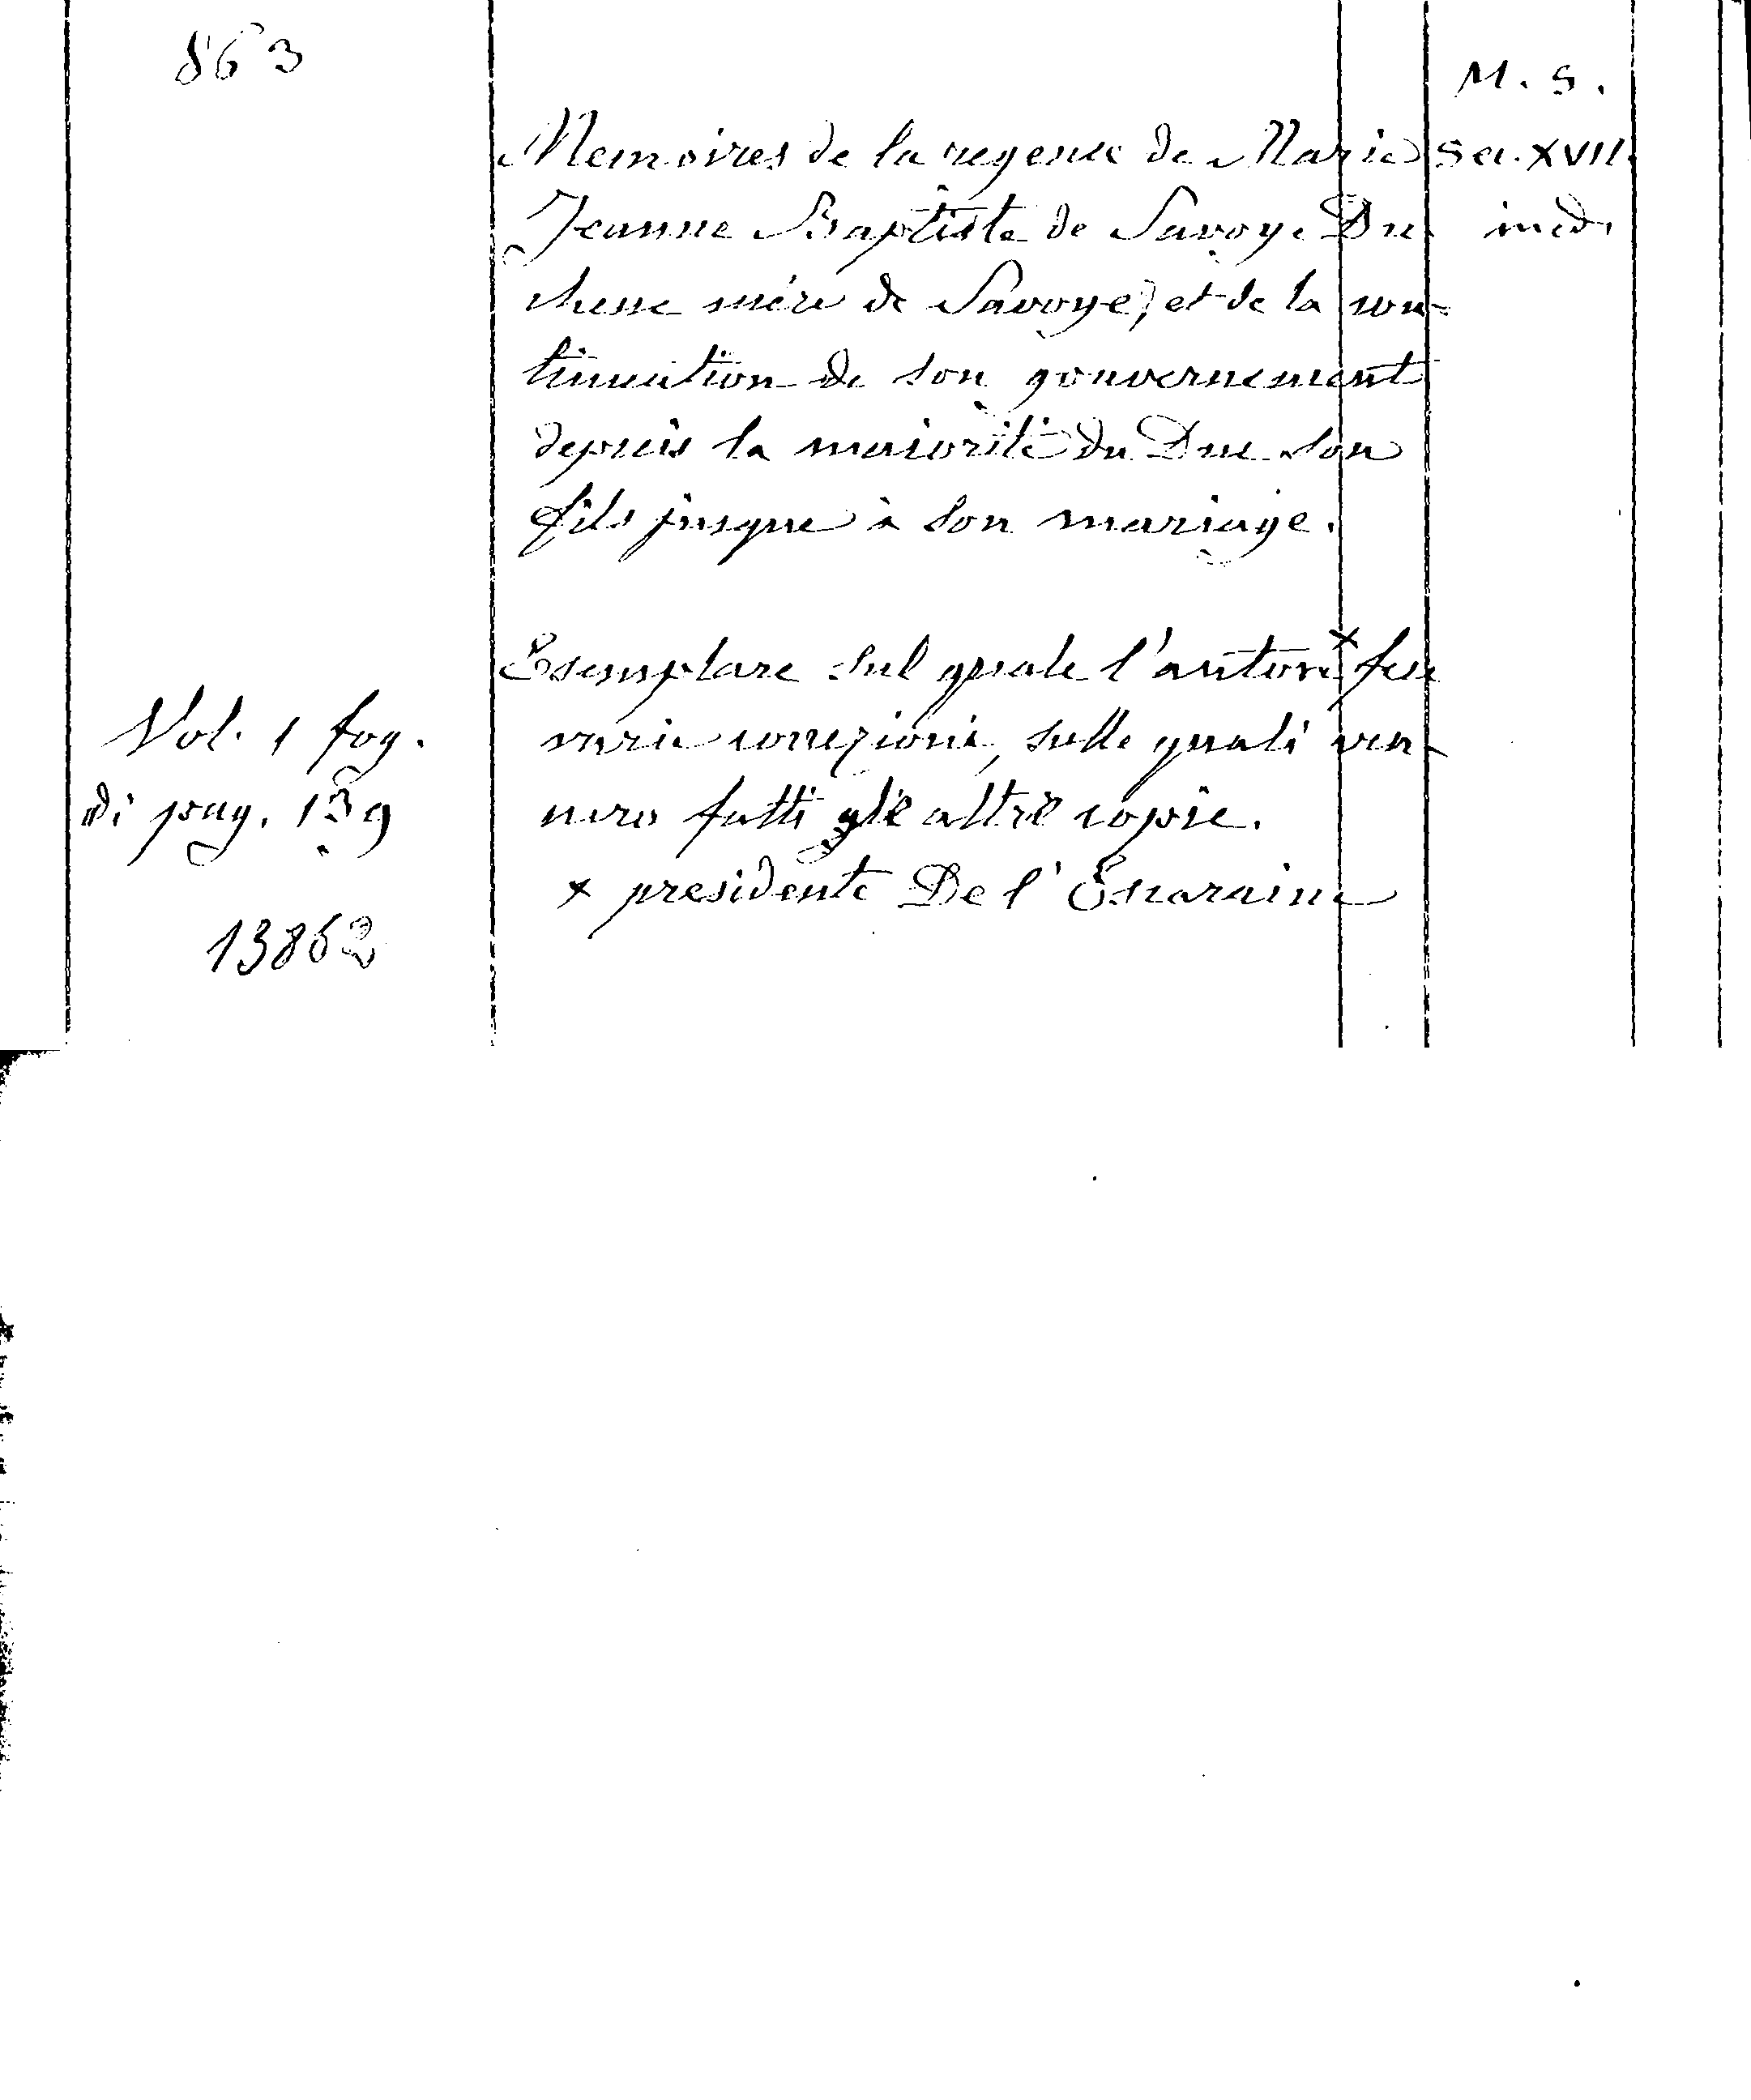 863
M. S.
Memoires de la regence de Marie
Jeanne Baptiste de Savoye Du
chesse mére de Savoye, et de la con-
tinuation de son gouvernement
depuis la maiorité du Duc son
fils jusque à son mariage.
Sec. XVII.
ined.
Esemplare sul quale l'autore x fece
varie correzioni, sulle quali ven-
nero fatti gli altri copie.
x presidente De l'Escaraine
Vol. 1 fog.
di pag. 139
13862